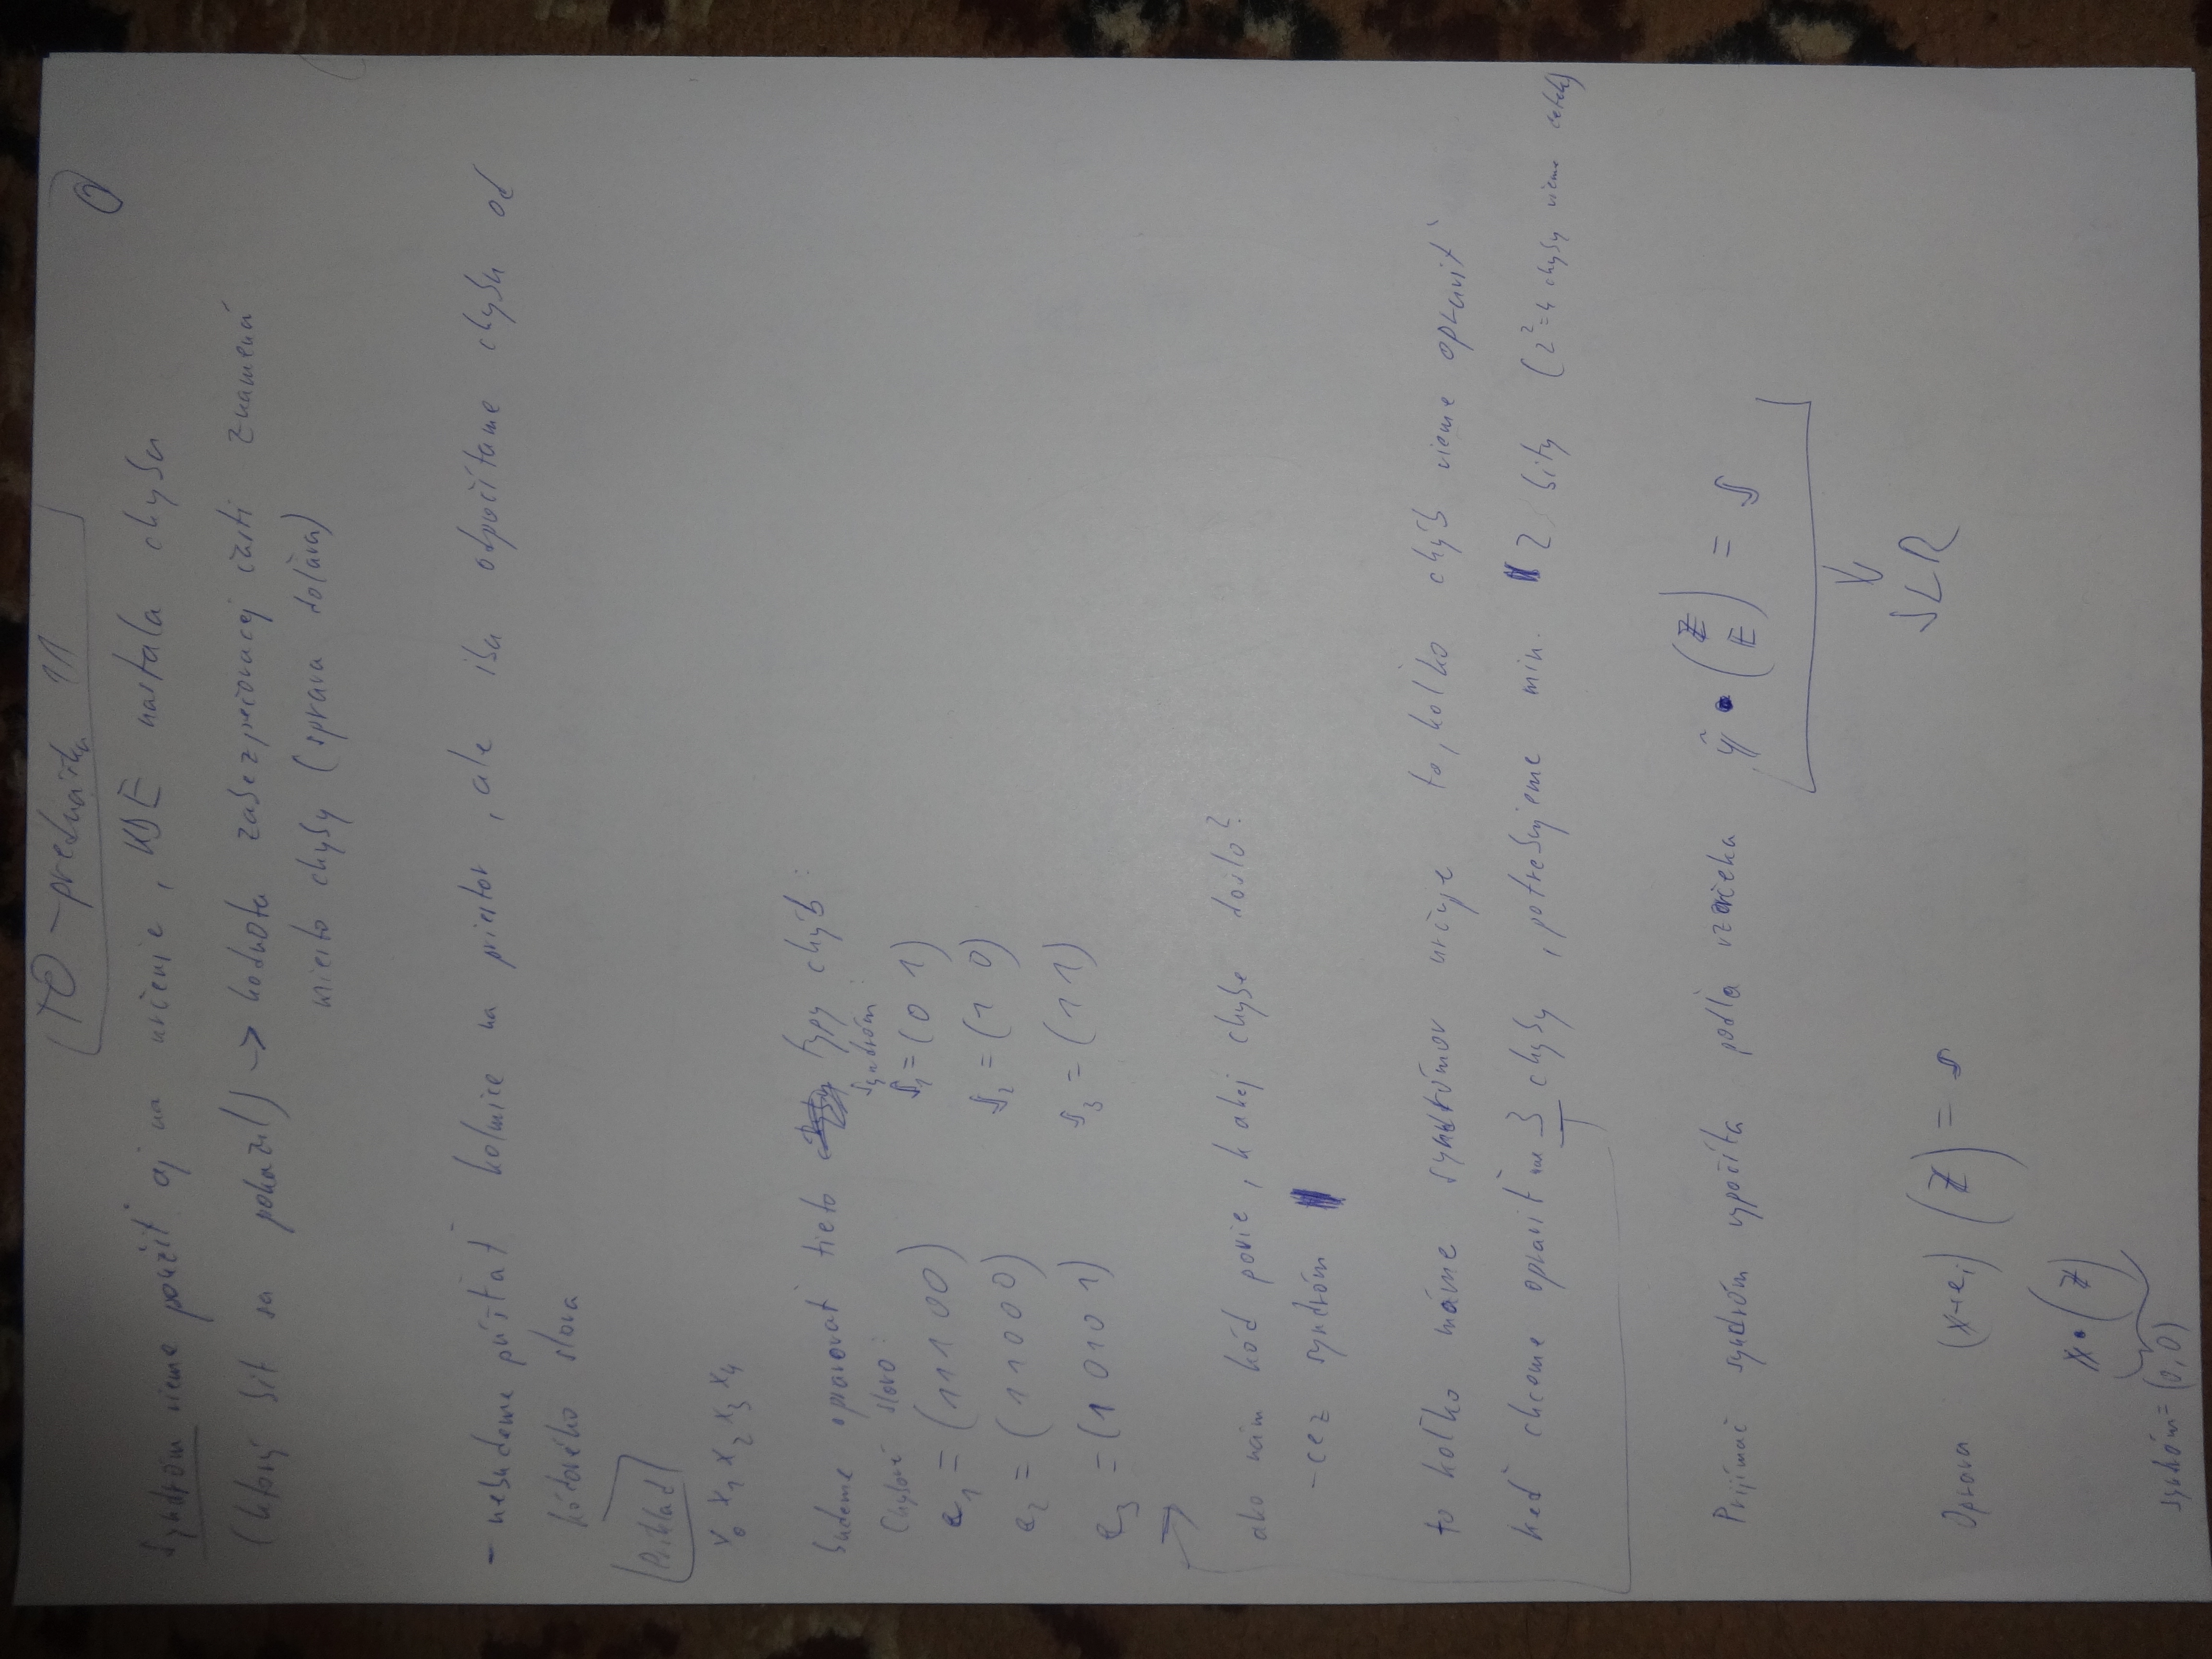 TO - prednáška 11
0
Syndróm vieme použiť aj na určenie, KDE nastala chyba
(ktorý bit sa pokazil) -> hodnota zabezpečovacej časti znamená
miesto chyby (sprava doľava)
- nebudeme púšťať kolmice na priestor, ale iba odpočítame chybu od
kódového slova
Príklad
x₀ x₁ x₂ x₃ x₄
budeme opravovať tieto typy chýb:
Chybové slovo: syndróm:
e₁ = (11100) s₁ = (0 1)
e₂ = (11000) s₂ = (1 0)
e₃ = (10101) s₃ = (1 1)
ako nám kód povie, k akej chybe došlo?
- cez syndróm
to koľko máme syndrómov určuje to, koľko chýb vieme opraviť
keď chceme opraviť 3 chyby, potrebujeme min. 2 bity (2²=4 chyby vieme)
Prijímač syndróm vypočíta podľa vzorčeka ỹ • (Z E) = s
SLR
Oprava (x+eᵢ) (Z) = s
x • (Z)
syndróm = (0,0)